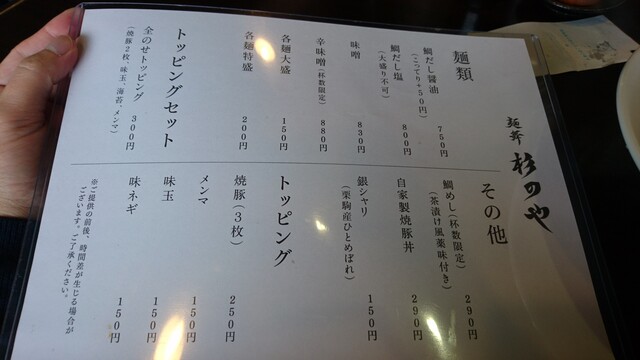 麺斎 杉のや
麺類
鯛だし醤油 750円
(こってり+50円)
鯛だし塩 800円
(大盛り不可)
味噌 830円
辛味噌(一杯数限定) 880円
各麺大盛 150円
各麺特盛 200円
トッピングセット
全のせトッピング 300円
(焼豚2枚、味玉、海苔、メンマ)
その他
鯛めし(杯数限定) 290円
(茶漬け風薬味付き)
自家製焼豚丼 290円
銀シャリ 150円
(栗駒産ひとめぼれ)
トッピング
焼豚(3枚) 250円
メンマ 150円
味玉 150円
味ネギ 150円
※ご提供の前後、時間差が生じる場合が
ございます。ご了承ください。